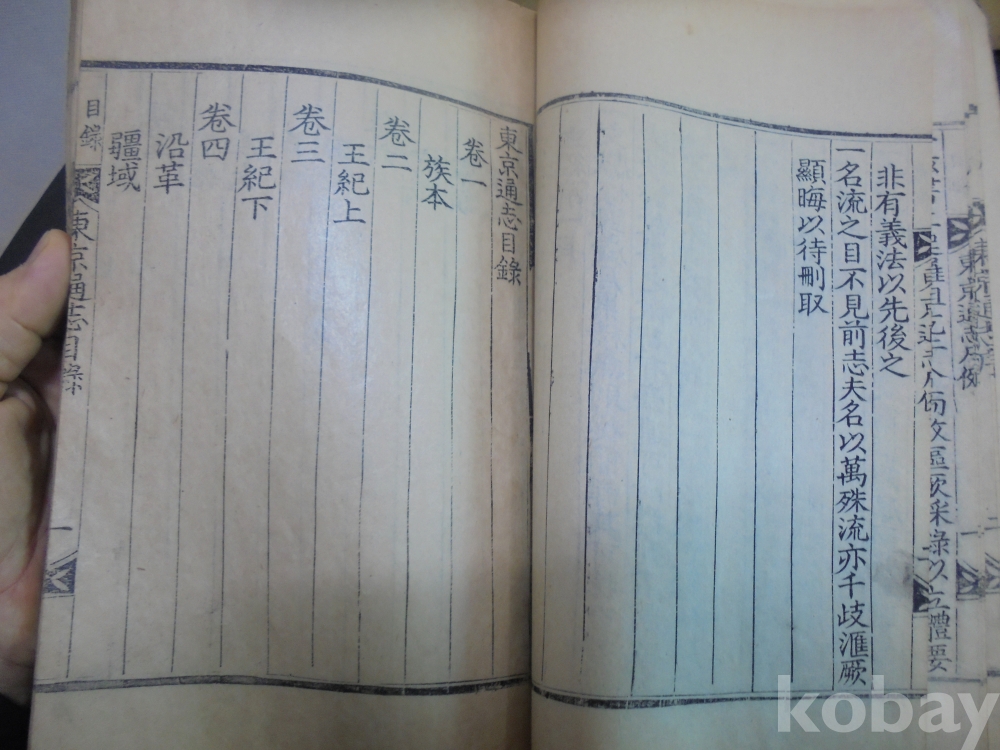 東京通志凡例
攷區厥采錄以立體要
非有義法以先後之
一名流之目不見前志夫名以萬殊流亦千歧滙厥
顯晦以待刪取
東京通志目錄
卷一
族本
卷二
王紀上
卷三
王紀下
卷四
沿革
疆域
目錄
東京通志目錄
一
kobay